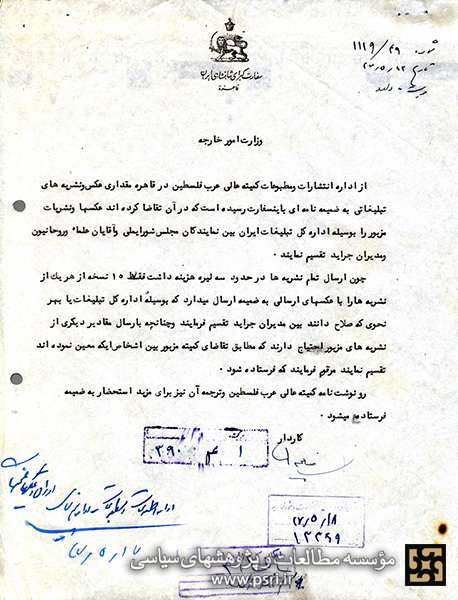 شماره ۱۱۱۹/۴۹
تاریخ ۲۷٫۵٫۱۲
سفارت کبرای شاهنشاهی ایران
قاهره
وزارت امور خارجه
از اداره انتشارات ومطبوعات کمیته عالی عرب فلسطین در قاهره مقداری عکس‌ونشریه های
تبلیغاتی به ضمیمه نامه ای باینسفارت رسیده است که در آن تقاضا کرده اند عکسها ونشریات
مزبور را بوسیله اداره کل تبلیغات ایران بین نمایندگان مجلس شورایملی وآقایان علماء وروحانیون
ومدیران جراید تقسیم نمایند ۰
چون ارسال تمام نشریه ها در حدود سه لیره هزینه داشت فقط ۱۵ نسخه از هر یک از
نشریه هارا با عکسهای ارسالی به ضمیمه ارسال میدارد که بوسیلهٔ اداره کل تبلیغات یا بهر
نحوی که صلاح دانند بین مدیران جراید تقسیم فرمایند وچنانچه بارسال مقادیر دیگری از
نشریه های مزبور احتیاج دارند که مطابق تقاضای کمیته مزبور بین اشخاص‌ایکه معین نموده اند
تقسیم نمایند مرقوم فرمایند که فرستاده شود ۰
رونوشت نامه کمیته عالی عرب فلسطین وترجمه آن نیز برای مزید استحضار به ضمیمه
فرستاده میشود ۰
کاردار
۱ ۴ ۰۳۹۰
۲۷٫۵٫۱۸
۱۲۴۹۹
مؤسسه مطالعات و پژوهشهای سیاسی
www.psri.ir